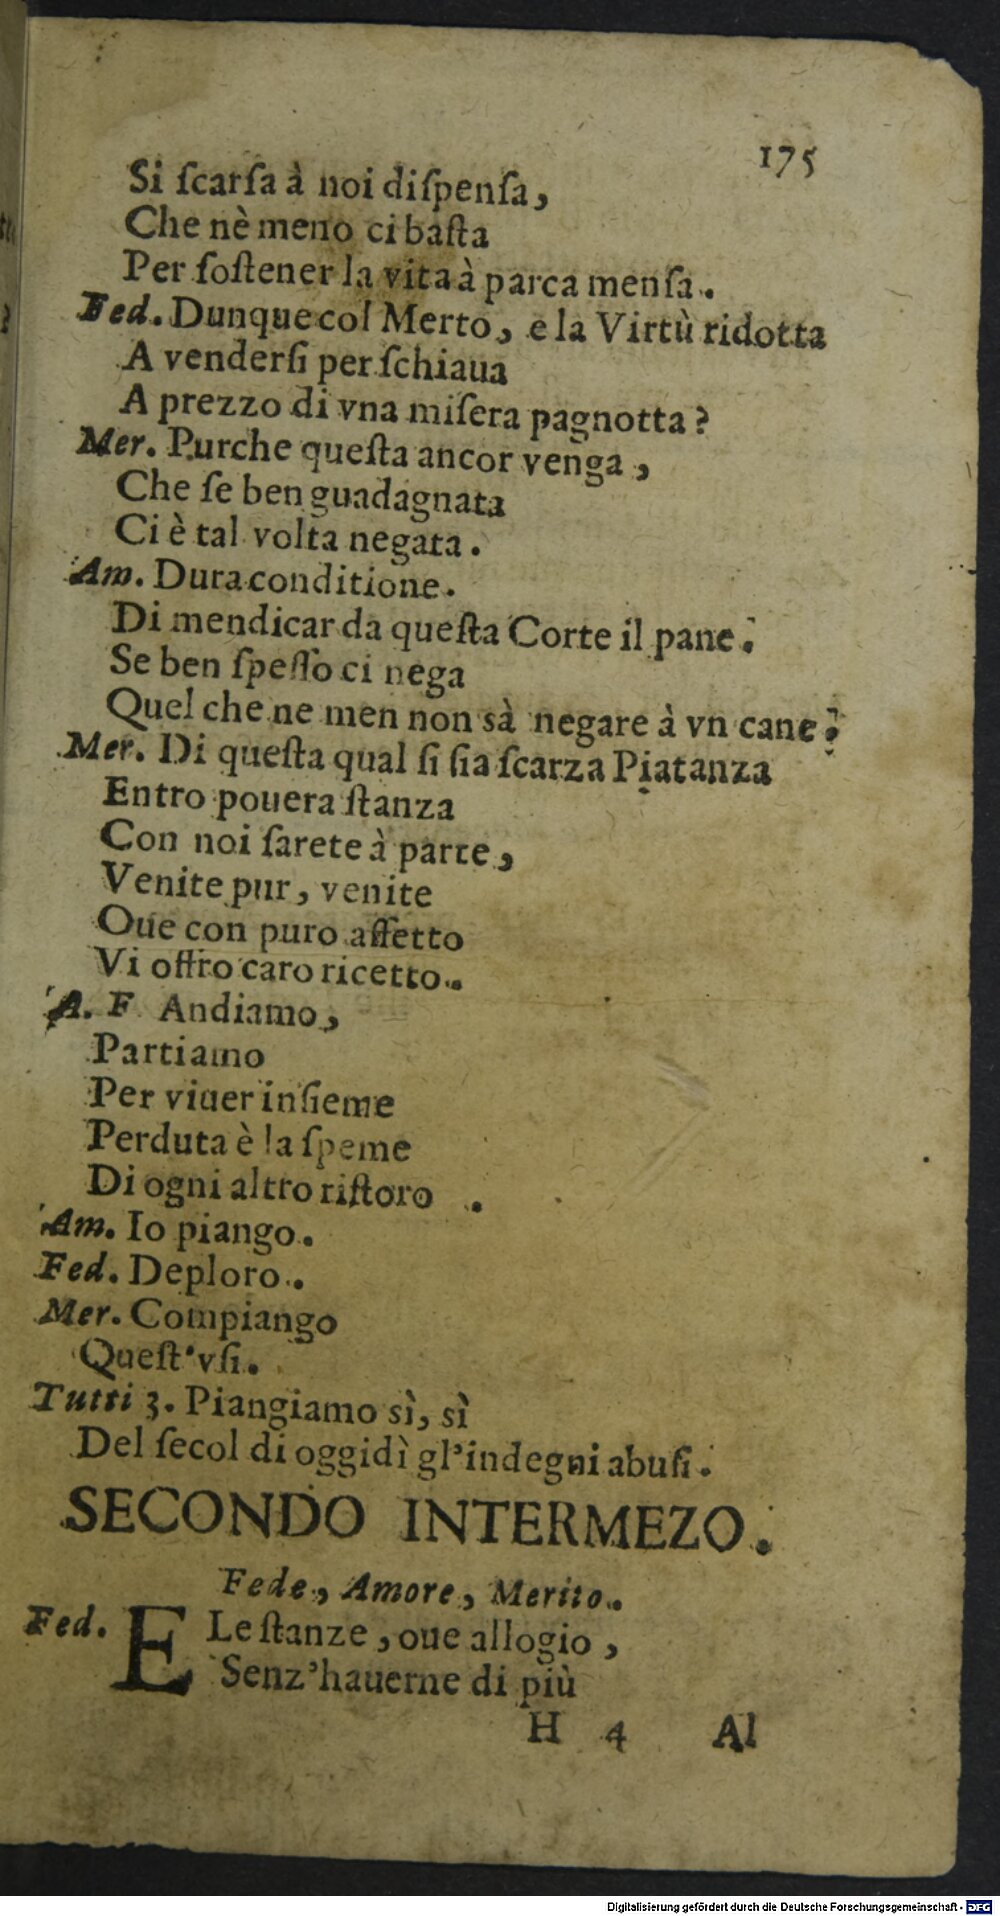 175
Si ſcarſa à noi diſpenſa,
Che nè meno ci baſta
Per ſoſtener la vita à parca menſa.
Fed. Dunque col Merto, e la Virtù ridotta
A venderſi per ſchiaua
A prezzo di vna miſera pagnotta?
Mer. Purche queſta ancor venga,
Che ſe ben guadagnata
Ci è tal volta negata.
Am. Dura conditione.
Di mendicar da queſta Corte il pane.
Se ben ſpeſſo ci nega
Quel che ne men non sà negare à vn cane?
Mer. Di queſta qual ſi ſia ſcarza Piatanza
Entro pouera ſtanza
Con noi ſarete à parte,
Venite pur, venite
Oue con puro affetto
Vi offro caro ricetto.
A. F. Andiamo,
Partiamo
Per viuer inſieme
Perduta è la ſpeme
Di ogni altro riſtoro .
Am. Io piango.
Fed. Deploro.
Mer. Compiango
Queſt'vſi.
Tutti 3. Piangiamo sì, sì
Del ſecol di oggidì gl'indegni abuſi.
SECONDO INTERMEZO.
Fede, Amore, Merito.
Fed. E Le ſtanze, oue allogio,
Senz'hauerne di più
H 4 Al
Digitalisierung gefördert durch die Deutsche Forschungsgemeinschaft - DFG